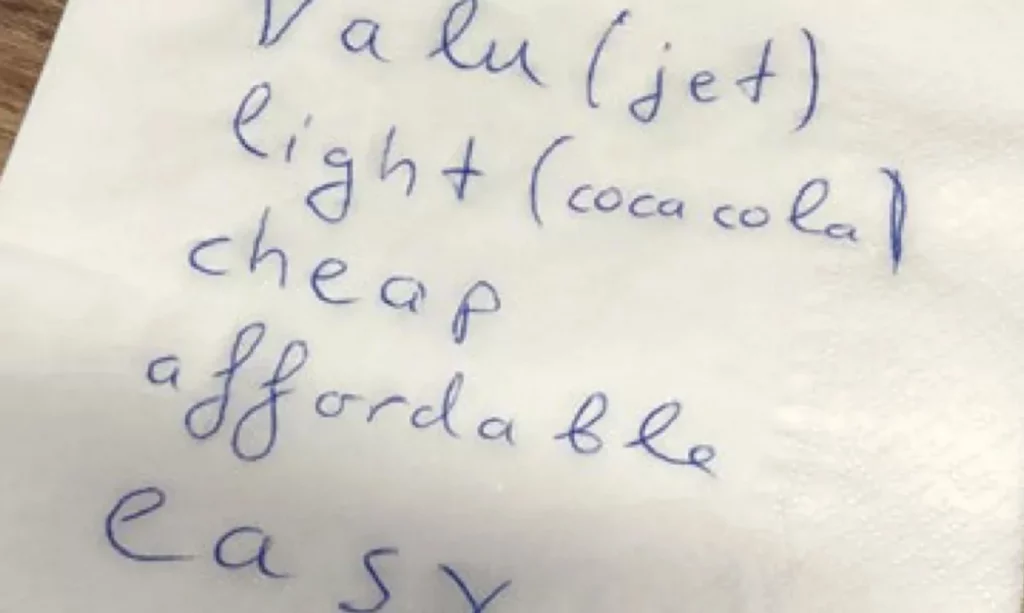 Valu (jet)
light (coca cola)
cheap
affordable
easy